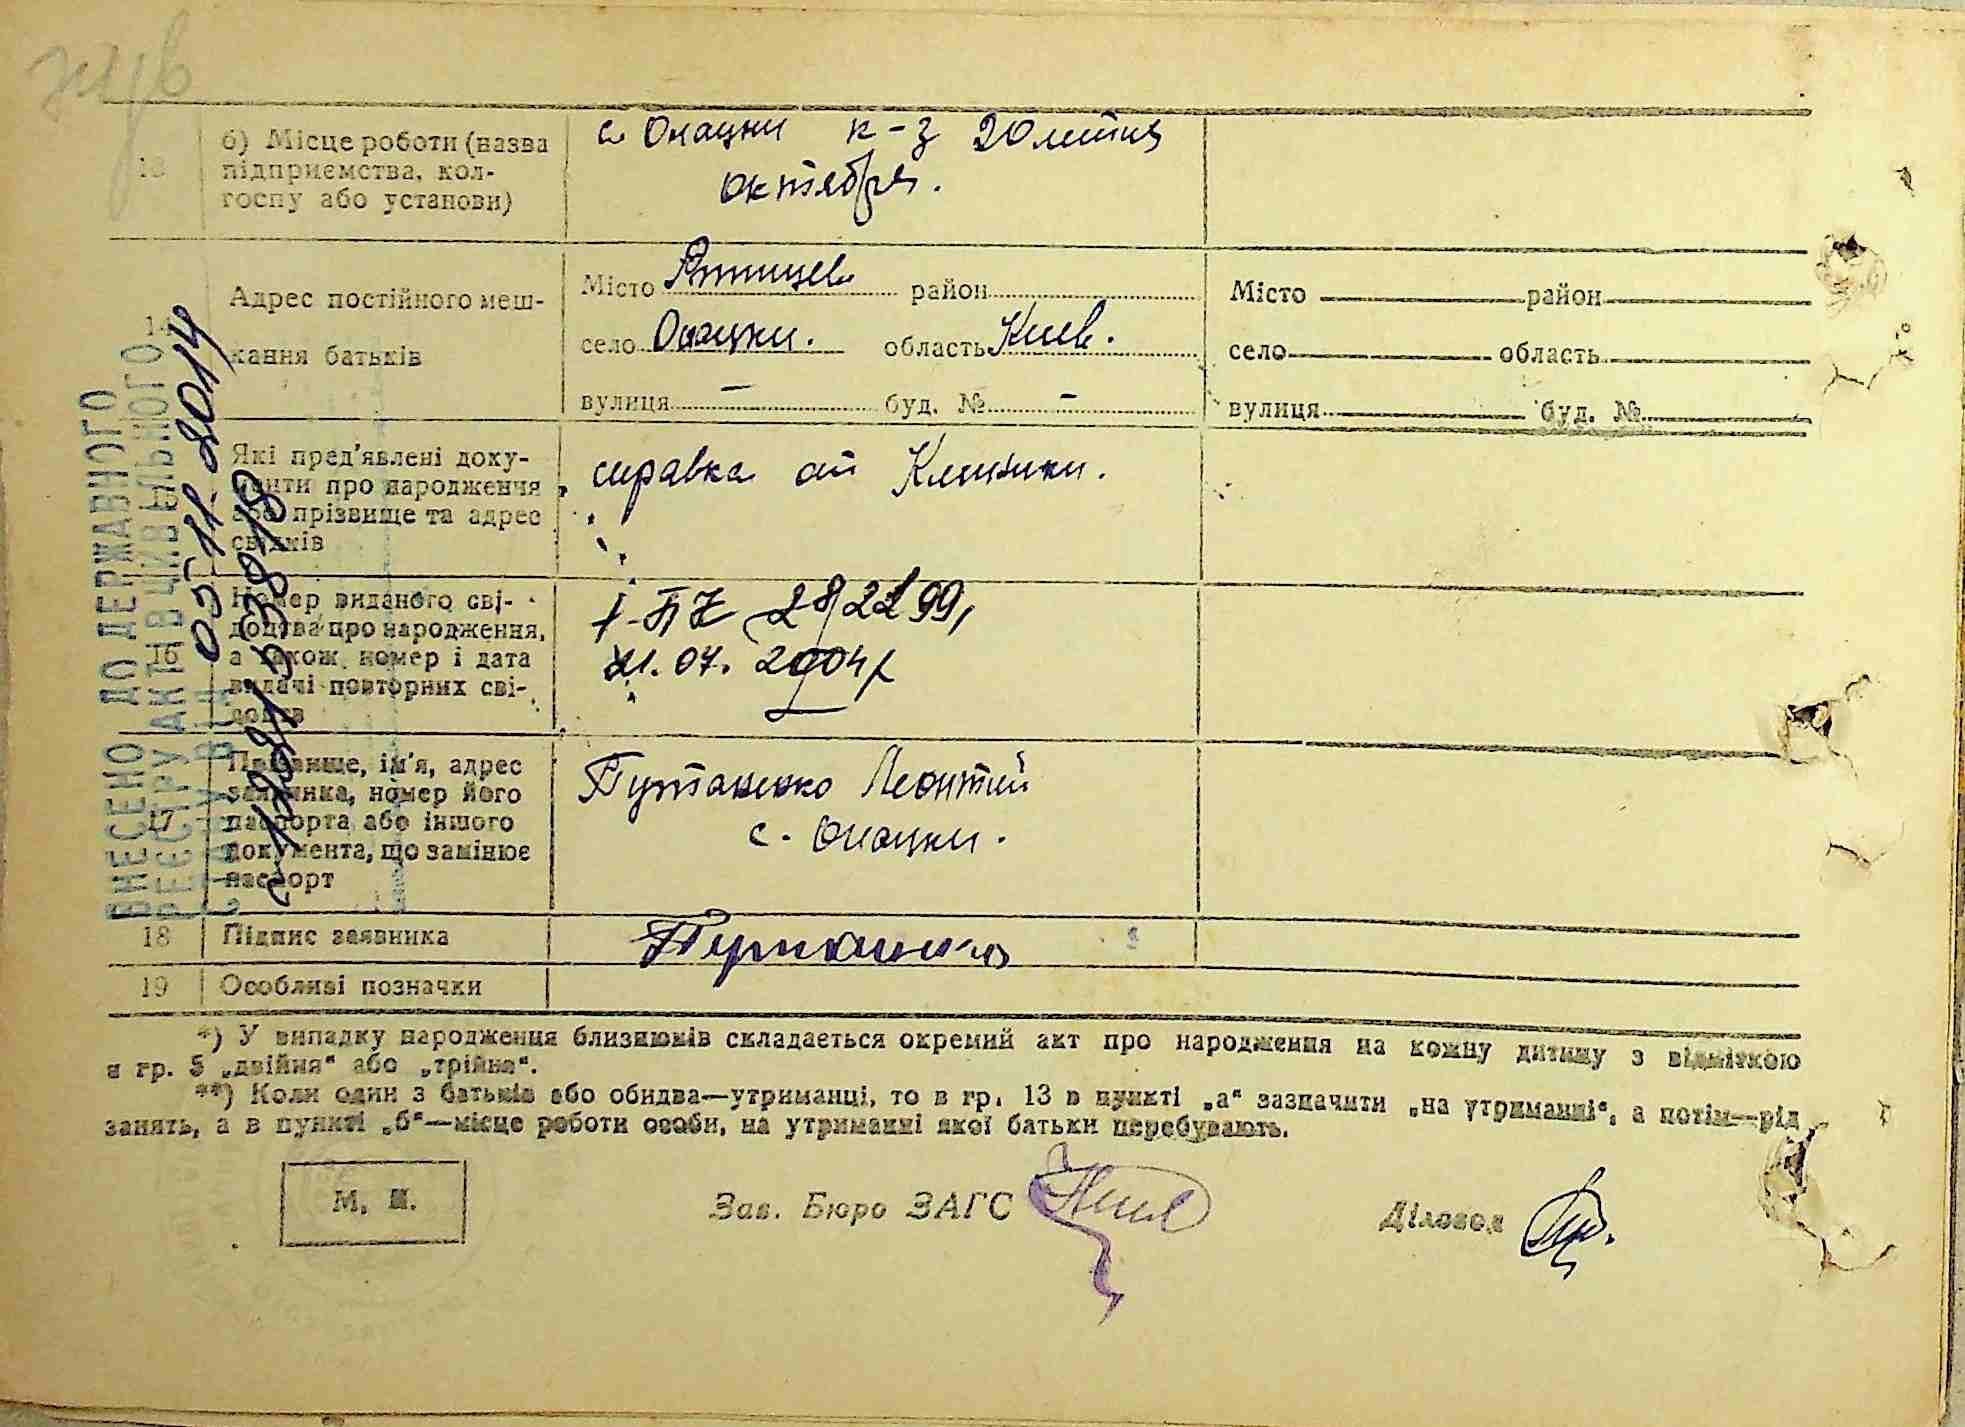 13
б) Місце роботи (назва
підприємства, кол-
госпу або установи)
с Опацки к-з 20 летия
октября.
14
Адрес постійного меш-
кання батьків
Місто район
село Опацки. область Киев.
вулиця — буд. № —
Місто район
село область
вулиця буд. №
15
Які пред'явлені доку-
менти про народження
або прізвище та адрес
свідків
справка от Клиники.
16
Номер виданого сві-
доцтва про народження,
а також номер і дата
видачі повторних сві-
доцтв
І-БК
21.07.2004р
17
Прізвище, ім'я, адрес
заявника, номер його
паспорта або іншого
документа, що замінює
паспорт
Леонтий
с. Опацки.
18
Підпис заявника
19
Особливі позначки
*) У випадку народження близнюків складається окремий акт про народження на кожну дитину з відміткою
в гр. 5 „двійня“ або „трійня“.
**) Коли один з батьків або обидва—утриманці, то в гр. 13 в пункті „а“ зазначити „на утриманні“, а потім—рід
занять, а в пункті „б“—місце роботи особи, на утриманні якої батьки перебувають.
М. П.
Зав. Бюро ЗАГС
Діловод
ВНЕСЕНО ДО ДЕРЖАВНОГО
РЕЄСТРУ АКТІВ ЦИВІЛЬНОГО
СТАНУ
05.11.2014